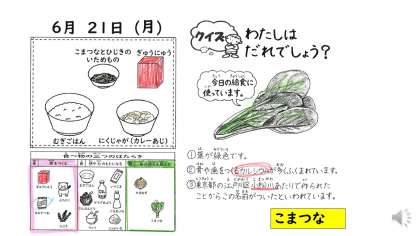 6月 21日（月）
こまつなとひじきの
いためもの
ぎゅうにゅう
むぎごはん
にくじゃが（カレーあじ）
食べ物の三つのはたらき
クイズ
わたしは
だれでしょう？
今日の給食に
使っています。
①葉が緑色です。
②骨や歯をつくるカルシウムが多くふくまれています。
③東京都の江戸川区小松川あたりで作られた
ことからこの名前がついたといわれています。
こまつな